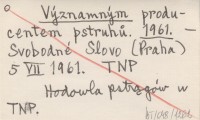 Významným produ-
centem pstruhů. 1961. -
Svobodné Slovo (Praha)
5 VII 1961. TNP
Hodowla pstrągów w
TNP.